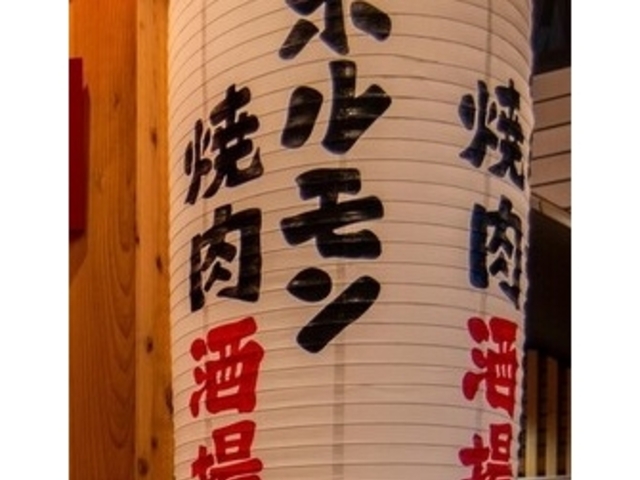 焼肉酒場
ホルモン
焼肉酒場